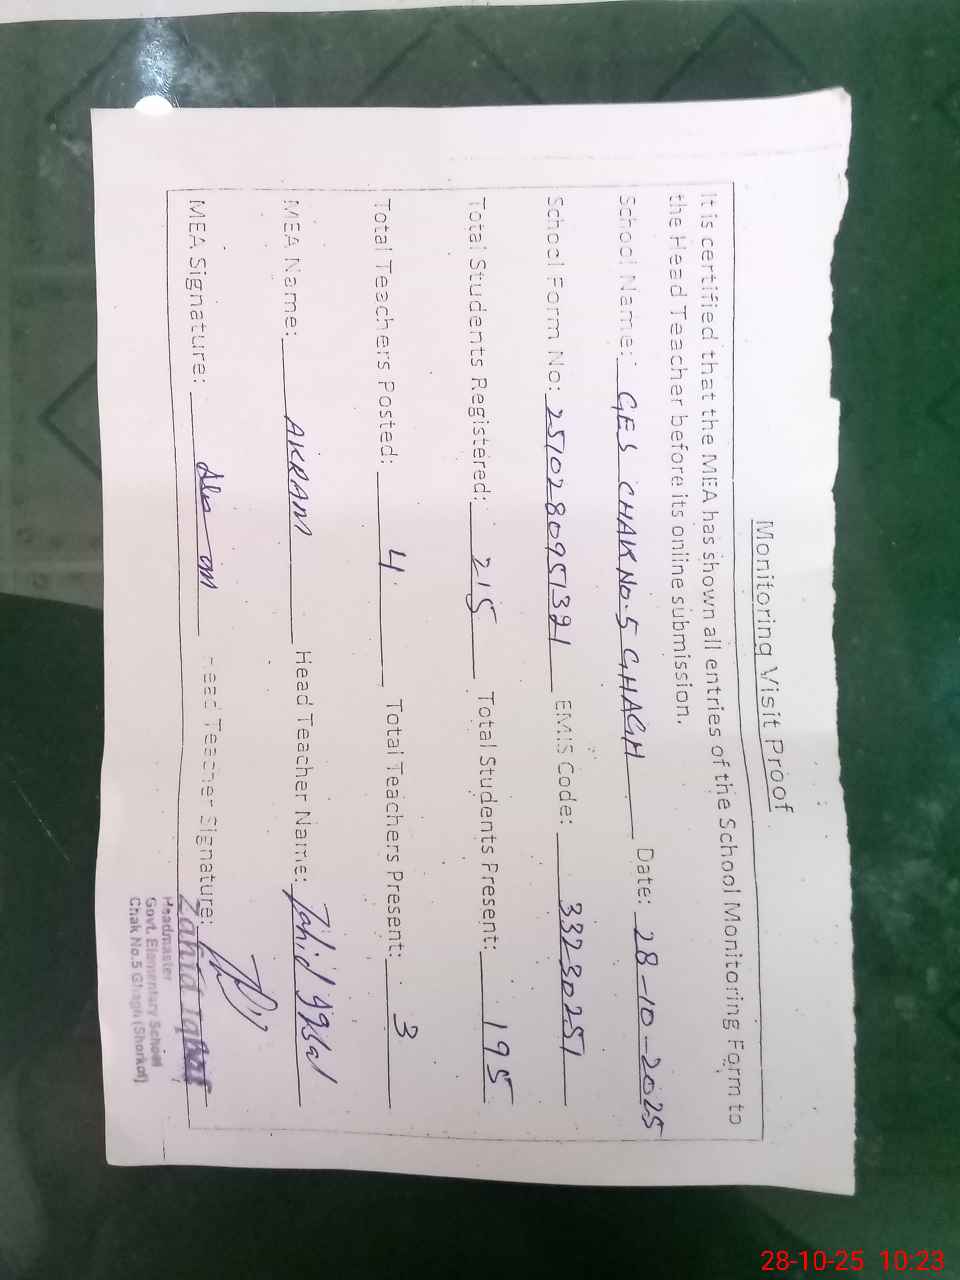 Monitoring Visit Proof
It is certified that the MEA has shown all entries of the School Monitoring Form to
the Head Teacher before its online submission.
School Name: GES CHAK NO.5 GHAGH Date: 28-10-2025
School Form No: 2510280951321 EMIS Code: 33230251
Total Students Registered: 215 Total Students Present: 195
Total Teachers Posted: 4 Total Teachers Present: 3
MEA Name: AKRAM Head Teacher Name: Zahid Iqbal
MEA Signature: Head Teacher Signature:
Zahid Iqbal
Headmaster
Govt. Elementary School
Chak No.5 Ghagh (Shorkot)
28-10-25 10:23